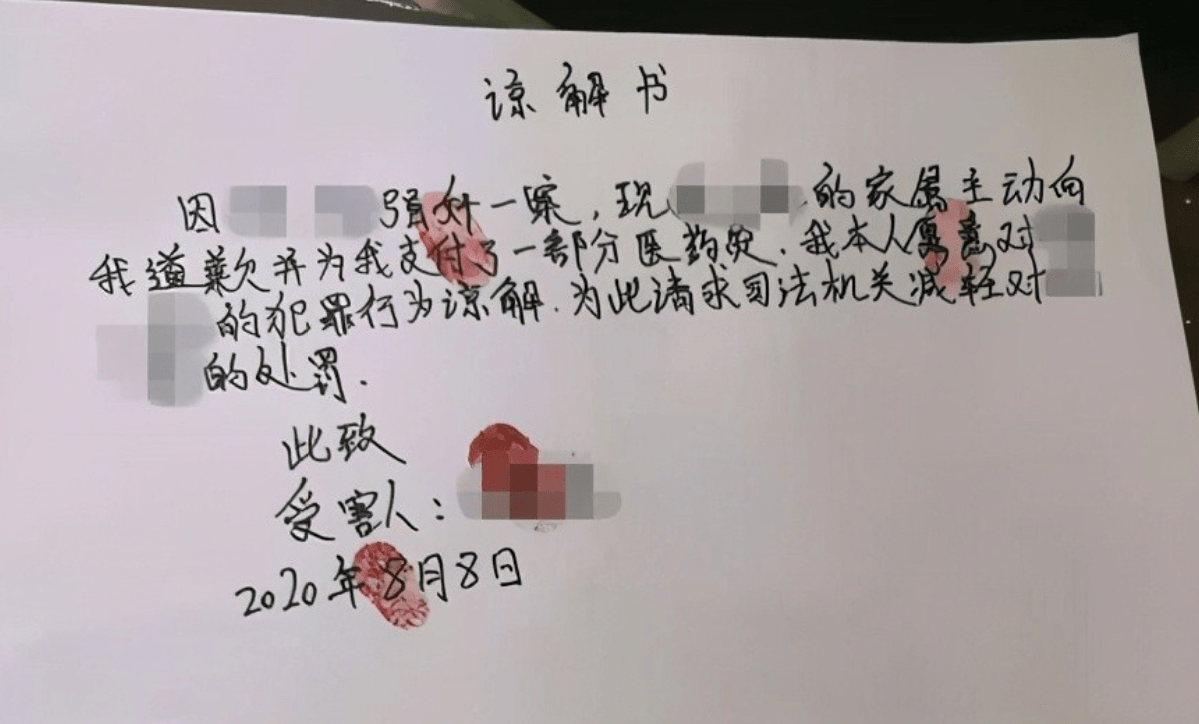 谅解书
因 强奸一案，现 的家属主动向
我道歉并为我支付了一部分医药费，我本人愿意对
的犯罪行为谅解.为此请求司法机关减轻对
的处罚.
此致
受害人：
2020年8月8日